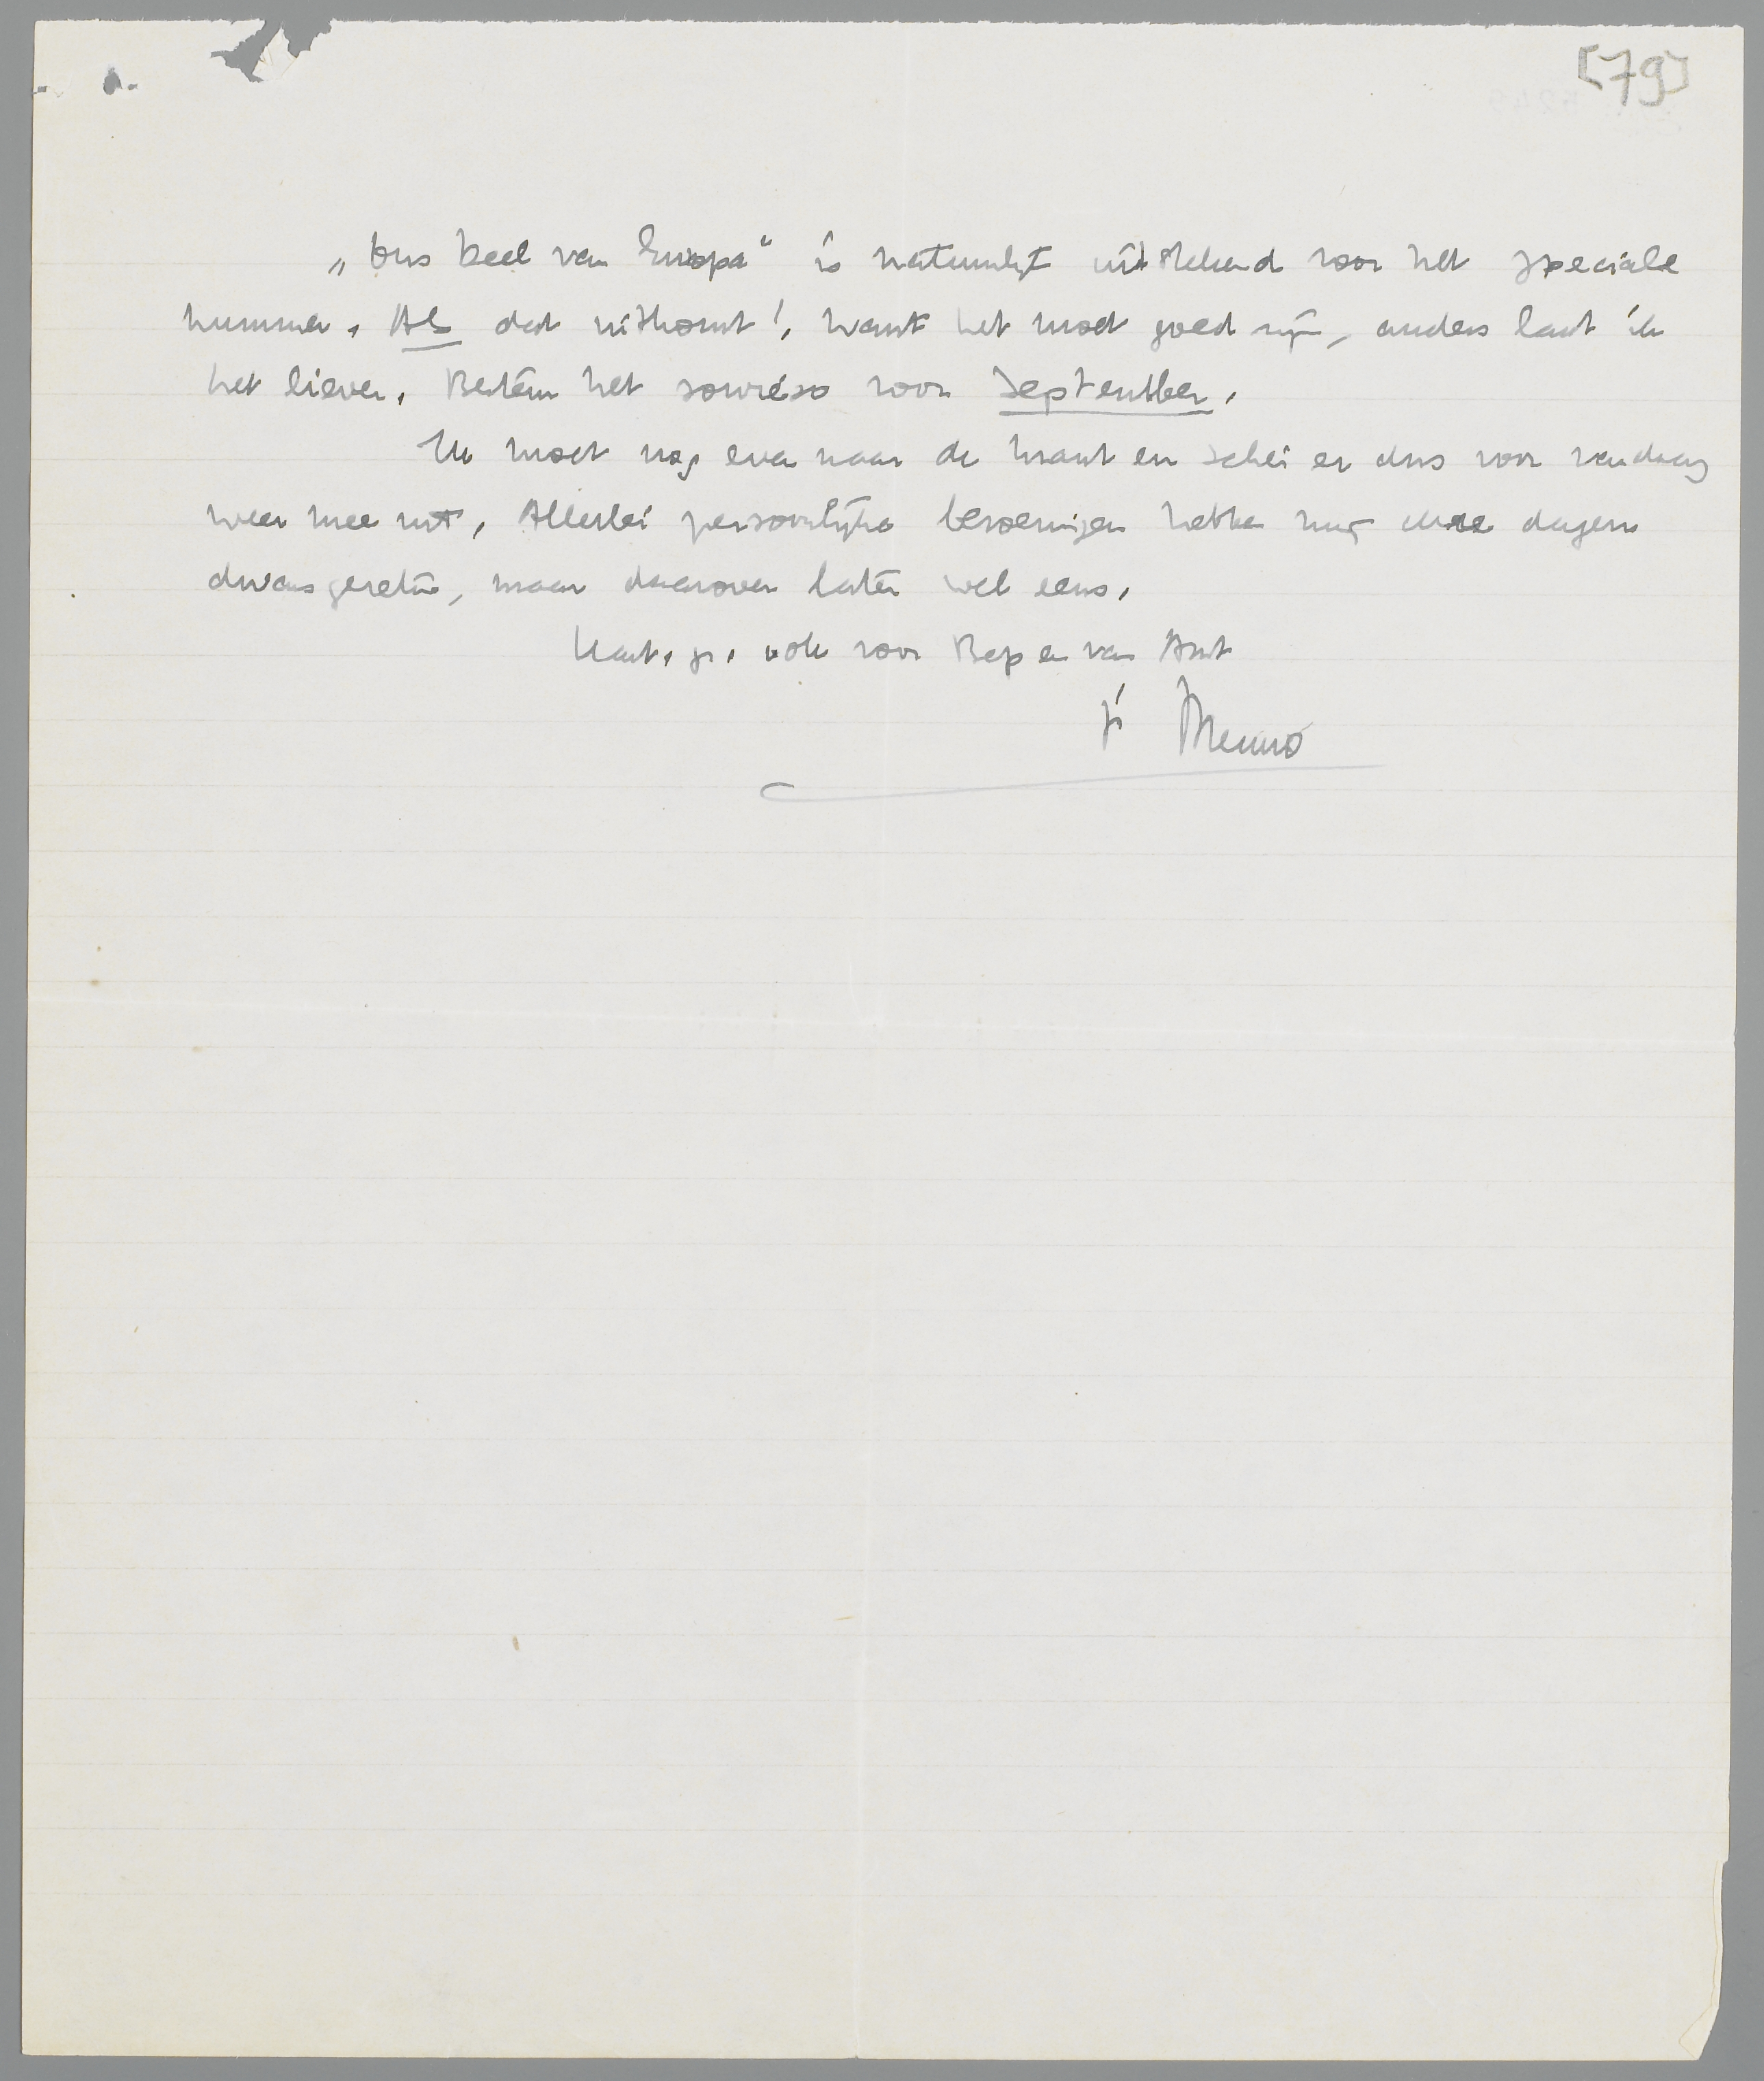 [79]
„Ons deel van Europa" is natuurlijk uitstekend voor het speciale
nummer. Als dat uitkomt!, want het moet goed zijn, anders laat ik
het liever. Bestem het sowieso voor September.
Ik moet nog even naar de krant en schei er dus voor vandaag
weer mee uit. Allerlei persoonlijke beroeringen hebben mij deze dagen
dwarsgezeten, maar daarover later wel eens.
Hart. gr. ook voor Bep en van Ant
je Menno